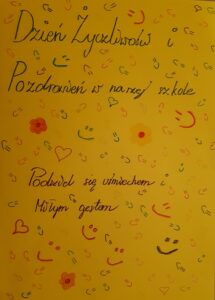 Dzień Życzliwości i
Pozdrowień w naszej szkole
Podziel się uśmiechem i
Miłym gestem